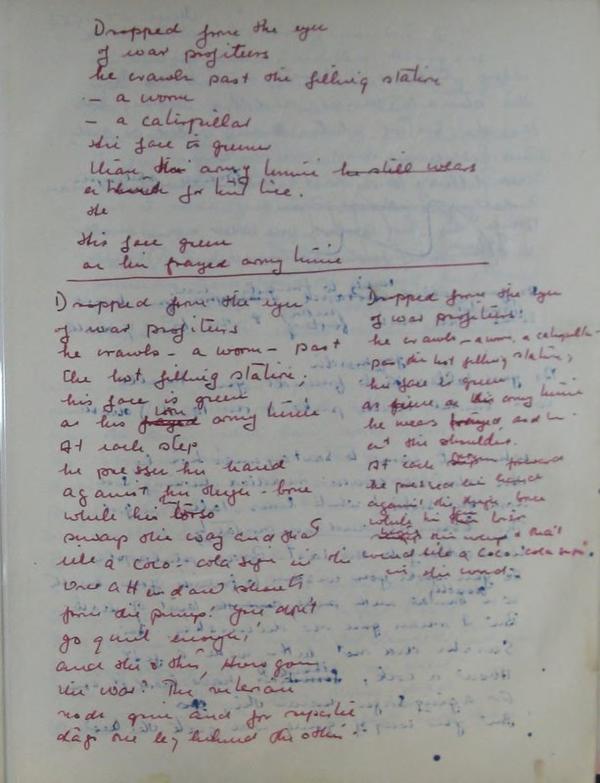 Dropped from the eyes
of war profiteers
he crawls past the filling station
- a worm
- a caterpillar
His face is greener
than his army tunic he still wears
for his lice.
He
His face green
as his frayed army tunic
Dropped from the eyes
of war profiteers
he crawls - a worm - past
the hot filling station;
his face is green
as his frayed worn army tunic
At each step
he presses his hand
against his thigh-bone
while his torso
sways this way and that
like a Coca-cola sign in the wind
attendant shouts
from the pump: you don't
go quick enough,
and the other, How goes
the war? The veteran
nods, grins and for repartee
drags one leg behind the other
Dropped from the eyes
of war profiteers
he crawls - a worm, a caterpillar -
past the hot filling station;
his face is green
as his army tunic
he wears frayed and
at the shoulder.
At each forward
he presses his hand
against the thigh bone
while his torso
this way & that
like a Coca-cola sign
in the wind.